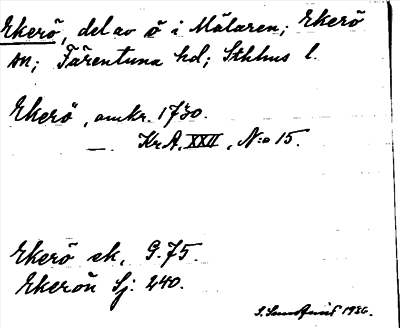 Ekerö, del av ö i Mälaren; Ekerö
sn; Färentuna hd; Sthlms l.
Ekerö, omkr. 1730.
— Kr A, XXII, N:o 15.
Ekerö sk, G. 75.
Ekerön Sj: 240.
1936.